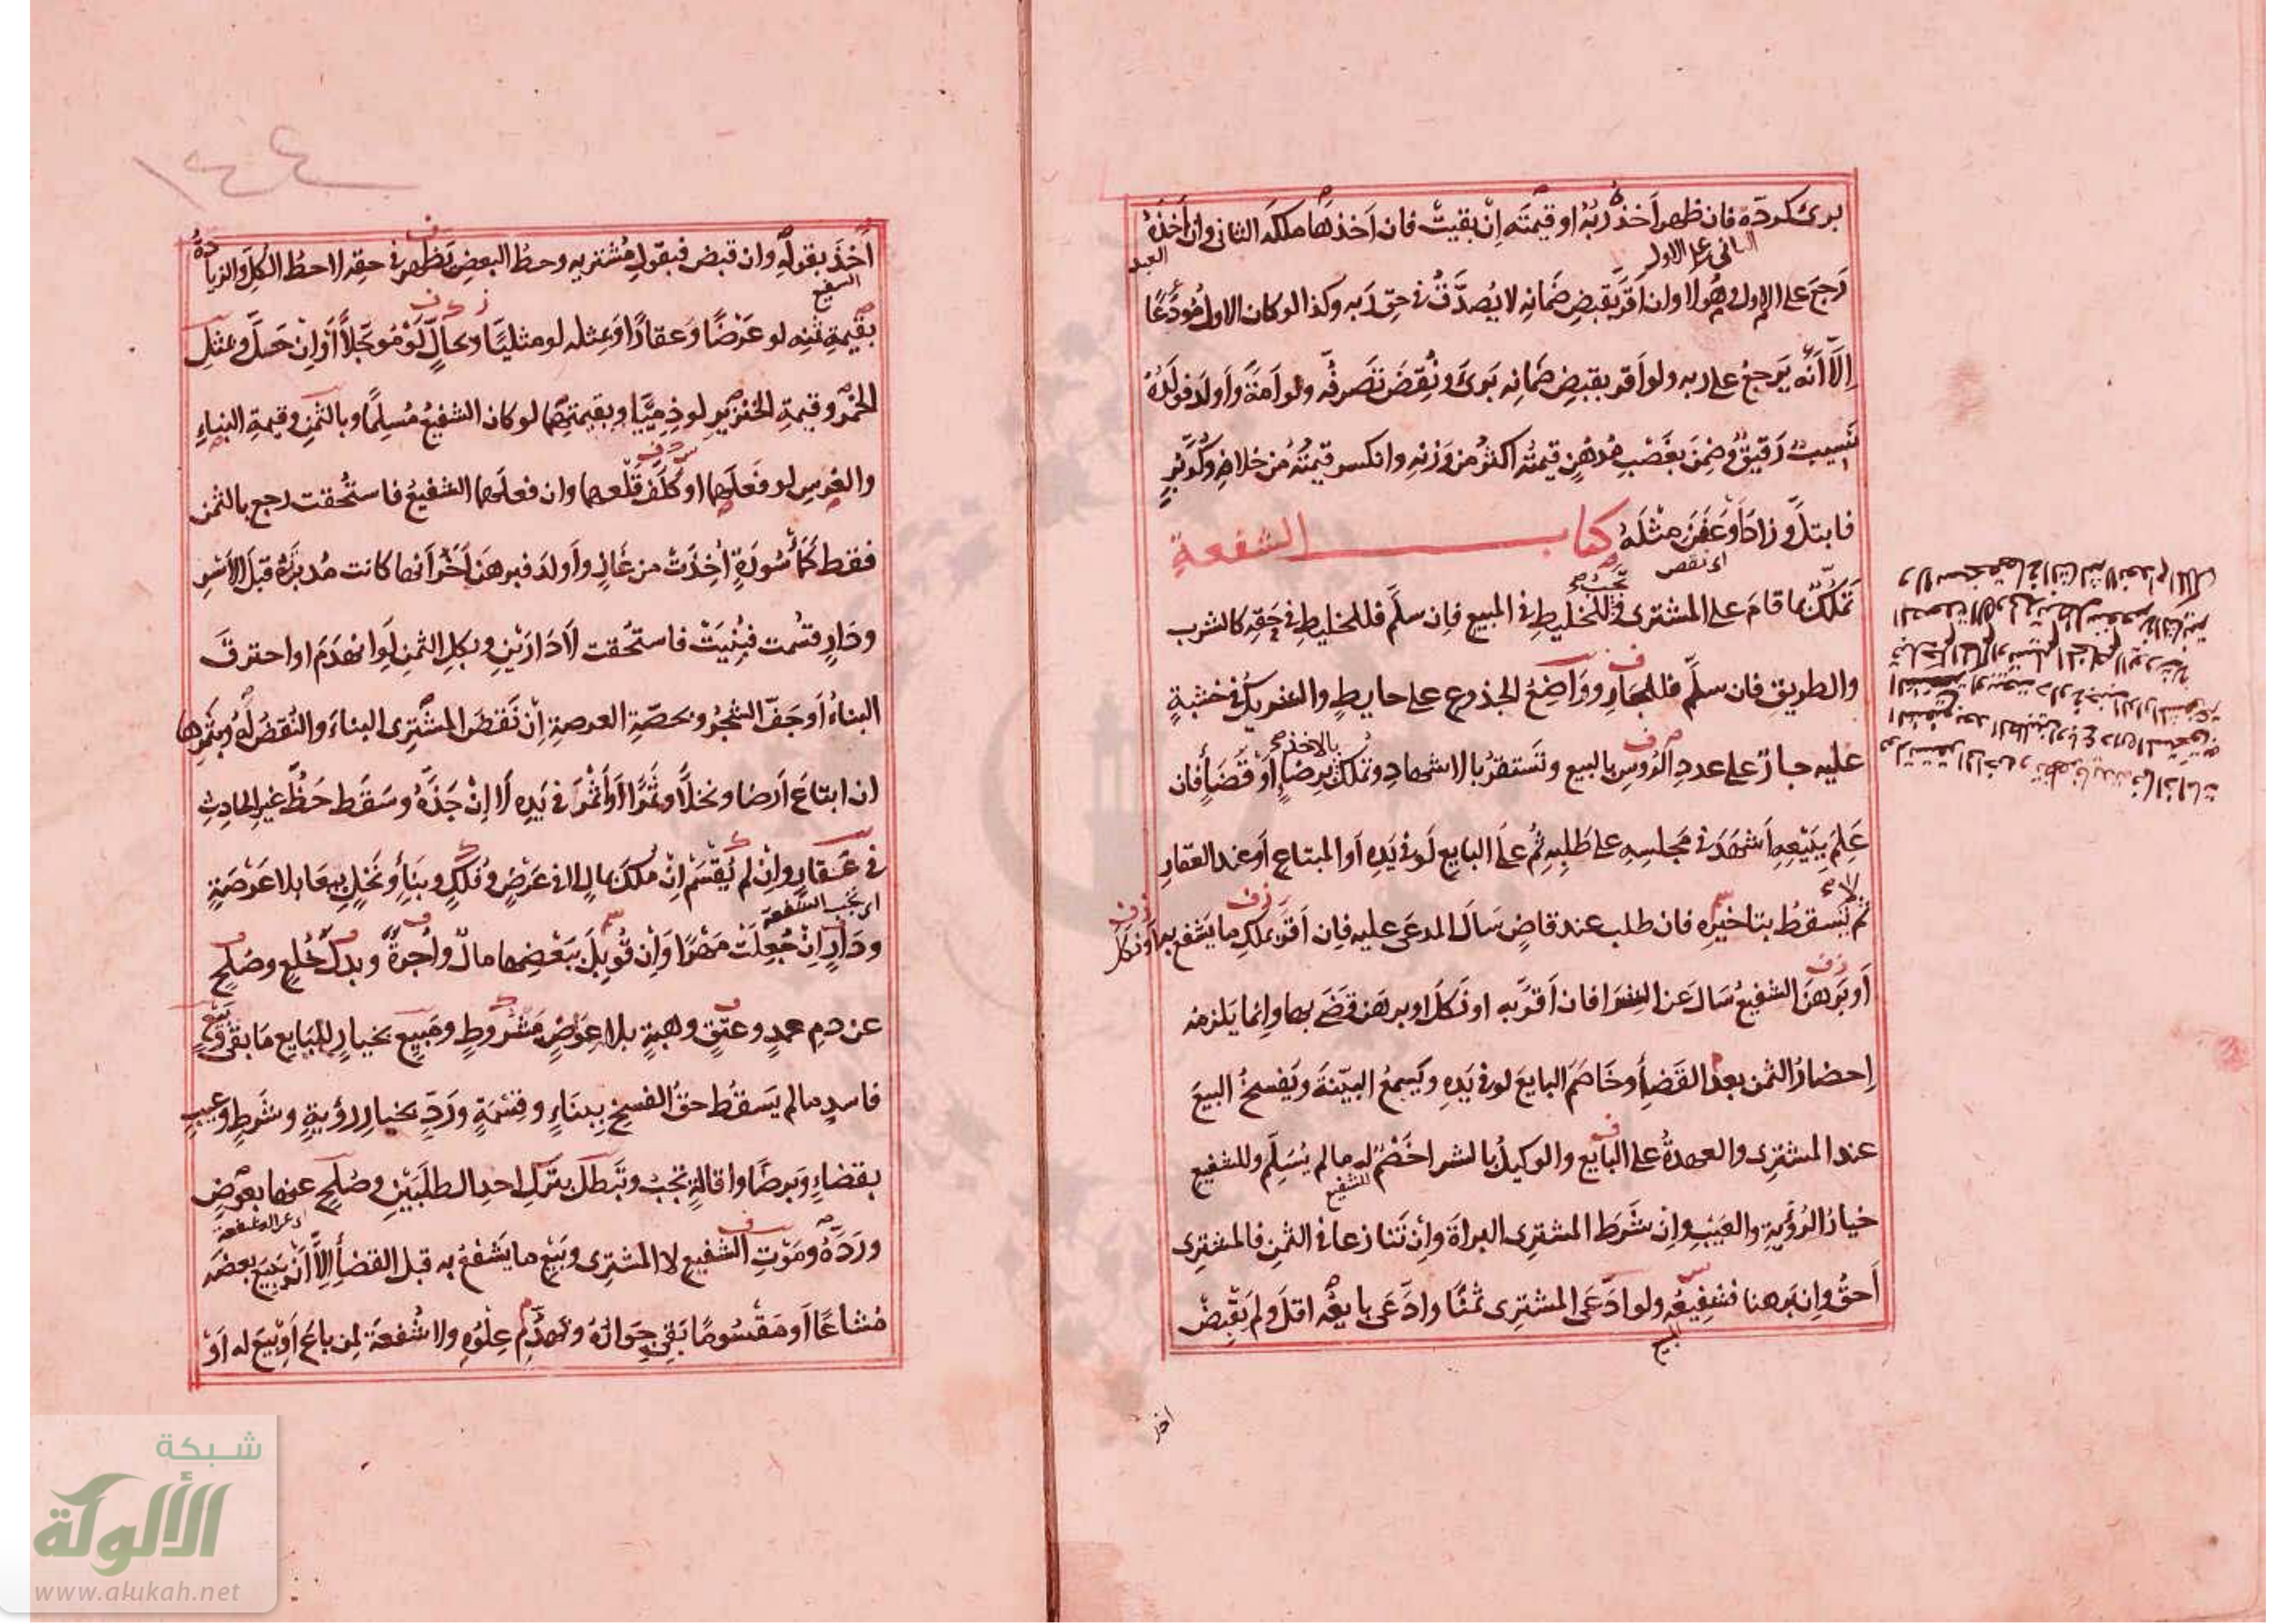 برئ كردّه فان ظهر اخذ ربه او قيمته ان بقيت فان اخذها ملكه الثانى وان اخذه
العبد
الثانى على الاول
رجع على الاول وهو لا وان اقر بقبض ضمانه لا يصدق فى حق ربه وكذا لو كان الاول مودعا
الا انه يرجع على ربه ولو اقر بقبض ضمانه برئ ونقض تصرفه ولو امة واولد فولده
نسيب رقيق وضمن بغصب مدهن قيمته اكثر من وزنه وانكسر قيمته من خلافه وكر بر
فابتل وزاد او عفن مثله كتاب الشفعة
اى نقص
تملك بما قام على المشترى تجب للخليط فى المبيع فان سلم فللخليط فى حقه كالشرب
والطريق فان سلم فللجار وواضع الجذوع على حايط والشريك فى خشبة
عليه جار على عدد الرؤس بالبيع وتستقر بالاشهاد وتملك بالاخذ برضا او قضأ فان
علم ببيعه اشهد فى مجلسه على طلبه ثم على البايع لو فى يده او المبتاع او عند العقار
ثم لا تسقط بتاخيره فان طلب عند قاض سال المدعى عليه فان اقر بملك ما يشفع به او نكل
او برهن الشفيع سال عن الشرا فان اقر به او نكل او برهن قضى بها وانما يلزمه
احضار الثمن بعد القضأ وخاصم البايع لو فى يده ويسمع البينة ويفسخ البيع
عند المشترى والعهدة على البايع والوكيل بالشرا خصم له ما لم يسلم وللشفيع
للشفيع
خيار الرؤية والعيب وان شرط المشترى البراة وان تنازعا فى الثمن فالمشترى
احق وان برهنا فشفيعه ولو ادعى المشترى ثمنا وادعى بايعه اقل ولم يقبض
اخذ
١٤٤
اخذ بقوله وان قبض فبقول مشتريه وحط البعض يظهر فى حقه لا حط الكل والزيادة
الشفيع
بقيمة ثمنه لو عرضا وعقارا وبمثله لو مثليا وبحال لو مؤجلا او ان حل وبمثل
الخمر وقيمة الخنزير لو ذميا وبقيمتهما لو كان الشفيع مسلما وبالثمن وقيمة البناء
والغرس لو فعلهما او كلف قلعهما وان فعلهما الشفيع فاستحقت رجع بالثمن
فقط كمأسورة اخذت من غاز واولد فبرهن اخر انها كانت مدبرته قبل الاسر
ودار قسمت فبنيت فاستحقت لا دارين وبكل الثمن لو انهدم او احترق
البناء او جف الشجر وبحصة العرصة ان نقض المشترى البناء والنقض له وبثمرها
ان ابتاع ارضا ونخلا وثمرا او اثمر فى يده لا ان جذه وسقط حظ غير الحادث
فى عقار وان لم يقسم ان ملك بمال لا فى عرض وفلك وبنأ ونخل بيعا بلا عرصة
اى تجب الشفعة
ودار ان جعلت مهرا وان قوبل ببعضها مال واجرة وبدل خلع وصلح
عن دم عمد وعتق وهبة بلا عوض مشروط ومبيع بخيار للبايع ما بقى وبيع
فاسد ما لم يسقط حق الفسخ ببناء وقسمة ورد بخيار رؤية وشرط وعيب
بقضاء وبرضا واقالة تجب وتبطل بترك احد الطلبين وصلح عنها بعوض
ورده وموت الشفيع لا المشترى وبيع ما يشفع به قبل القضأ الا ان يبيع بعضه
مشاعا او مقسوما بقى جواره وتهدم علوه ولا شفعة لمن باع او بيع له او
شبكة
الألوكة
www.alukah.net